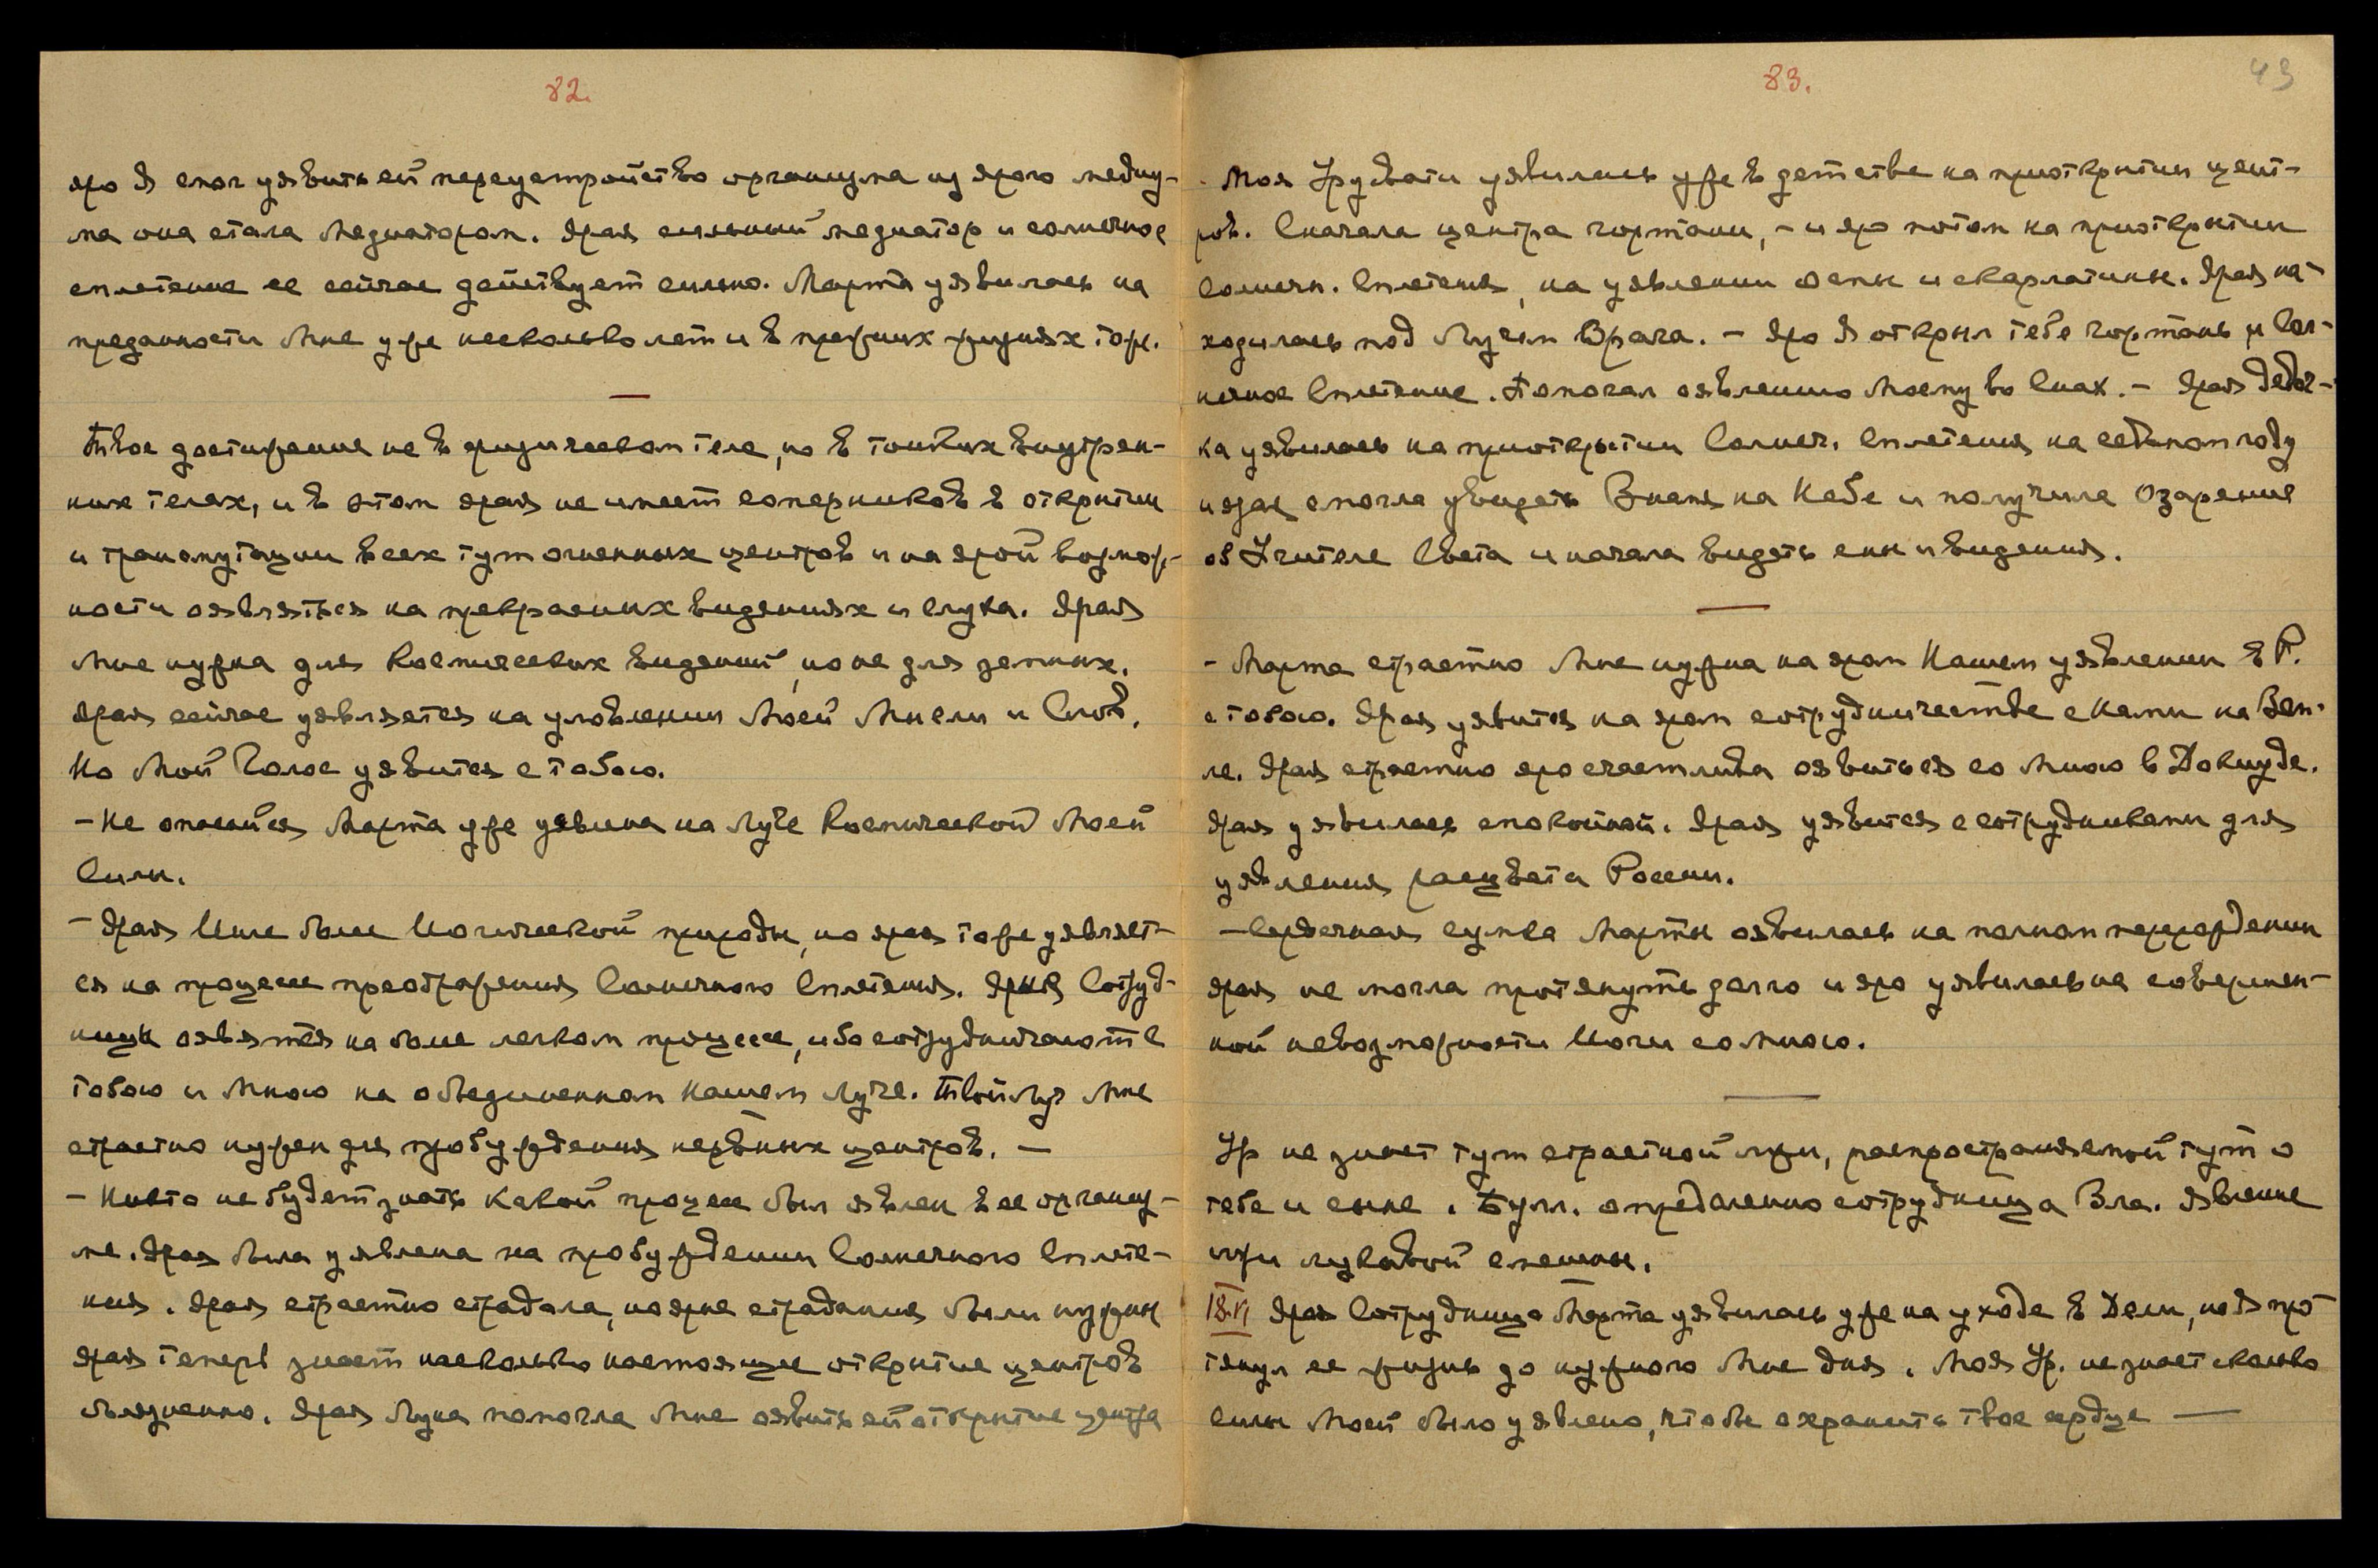 82.
яро Я смог уявить ей переустройство организма из ярого медиу-
ма она стала Медиатором. Ярая сильный медиатор и солнечное
сплетение ее сейчас действует сильно. Марта уявилась на
преданности Мне уже несколько лет и в прежних жизнях тоже.
Твое достижение не в физическом теле, но в тонких внутрен-
них телах, и в этом ярая не имеет соперников в открытии
и трансмутации всех тут огненных центров и на ярой возмож-
ности оявляться на прекрасных видениях и слуха. Ярая
Мне нужна для Космических видений, но не для земных.
Ярая сейчас уявляется на уловлении Моей Мысли и Слов,
Но Мой Голос уявится с тобою.
- Не опасайся Марта уже уявлена на Луче Космической Моей
Силы.
- Ярая более Иогической природы, но ярая тоже уявляет-
ся на процессе преображения Солнечного Сплетения. Яркие Сотруд-
ницы оявятся на более легком процессе, ибо сотрудничают с
тобою и Мною на объединенном нашем луче. Твой луч Мне
страстно нужен для пробуждения нервных центров. -
- Никто не будет знать какой процесс был явлен в ее организ-
ме. Ярая была уявлена на пробуждении Солнечного Сплете-
ния. Ярая страстно страдала, но ярые страдания были нужны
ярая теперь знает насколько настоящее открытие центров
болезненно. Ярая Луна помогла Мне оявить ей открытие центра
83.
43
- Моя Урусвати уявилась уже в детстве на приоткрытии цент-
ров. Сначала центра гортани, - и яро потом на приоткрытии
Солнечн. Сплетения, на уявлении оспы и скарлатины. Ярая на-
ходилась под Лучом Врача. - Яро Я открыл тебе гортань и Сол-
нечное Сплетение. Помогал оявлению Моему во Снах. - Ярая девоч-
ка уявилась на приоткрытии Солнеч. Сплетения на седьмом году
и ярая смогла увидеть Знамя на Небе и получила Озарение
об Учителе Света и начала видеть сны и видения.
- Марта страстно Мне нужна на яром Нашем уявлении в Р.
с тобою. Ярая уявится на яром сотрудничестве с Нами на Зем-
ле. Ярая страстно яро счастлива оявиться со Мною в Докиуде.
Ярая уявилась спокойной. Ярая уявится с сотрудниками для
уявления расцвета России.
- Сердечная сумка Марты оявилась на полном перерождении
ярая не могла протянуть долго и яро уявилась на совершен-
ной невозможности Иоги со Мною.
Ур не знает тут страстной лжи, распространяемой тут о
тебе и сыне. Булл. определенно сотрудница Вла. Явление
лжи лукавой спешны.
18.VI Ярая Сотрудница Марта уявилась уже на уходе в Дели, но Я про-
тянул ее жизнь до нужного Мне дня. Моя Ур. не знает сколько
силы Моей было уявлено, чтобы охранить твое сердце —